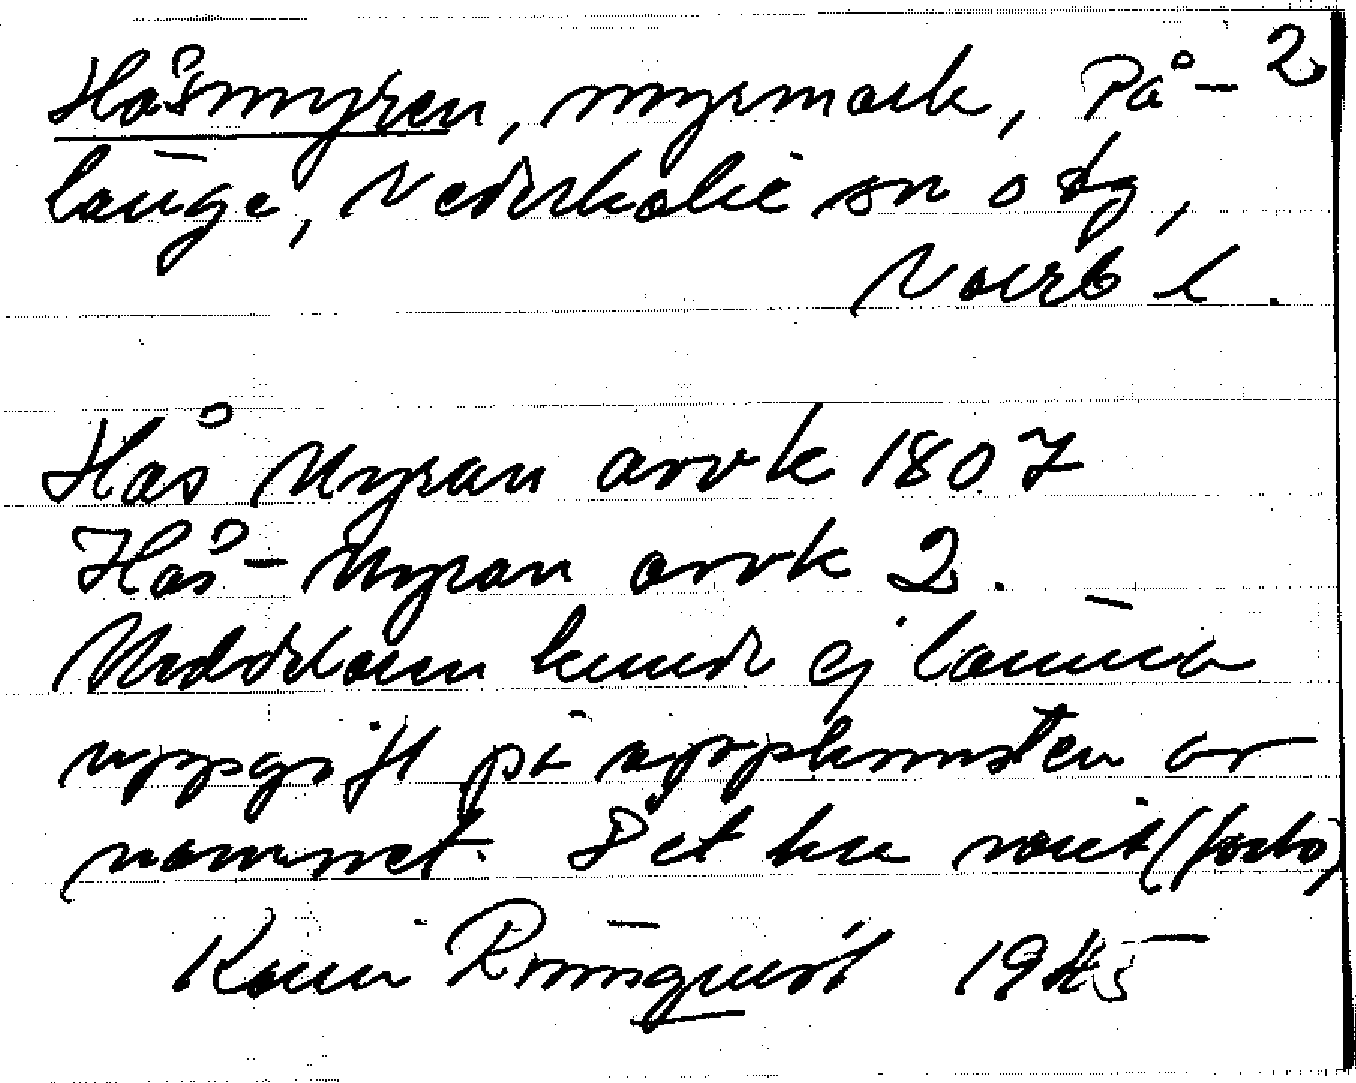 Håsmyren, myrmark, På- 2
länge, Nederkalix sn o tg,
Norrb l.
Hås Myran avvk 1807
Hås-Myran avvk 2.
Meddelaren kunde ej lämna
uppgift på uppkomsten av
namnet. Det har varit (forts)
Karin Rönnquist 1945